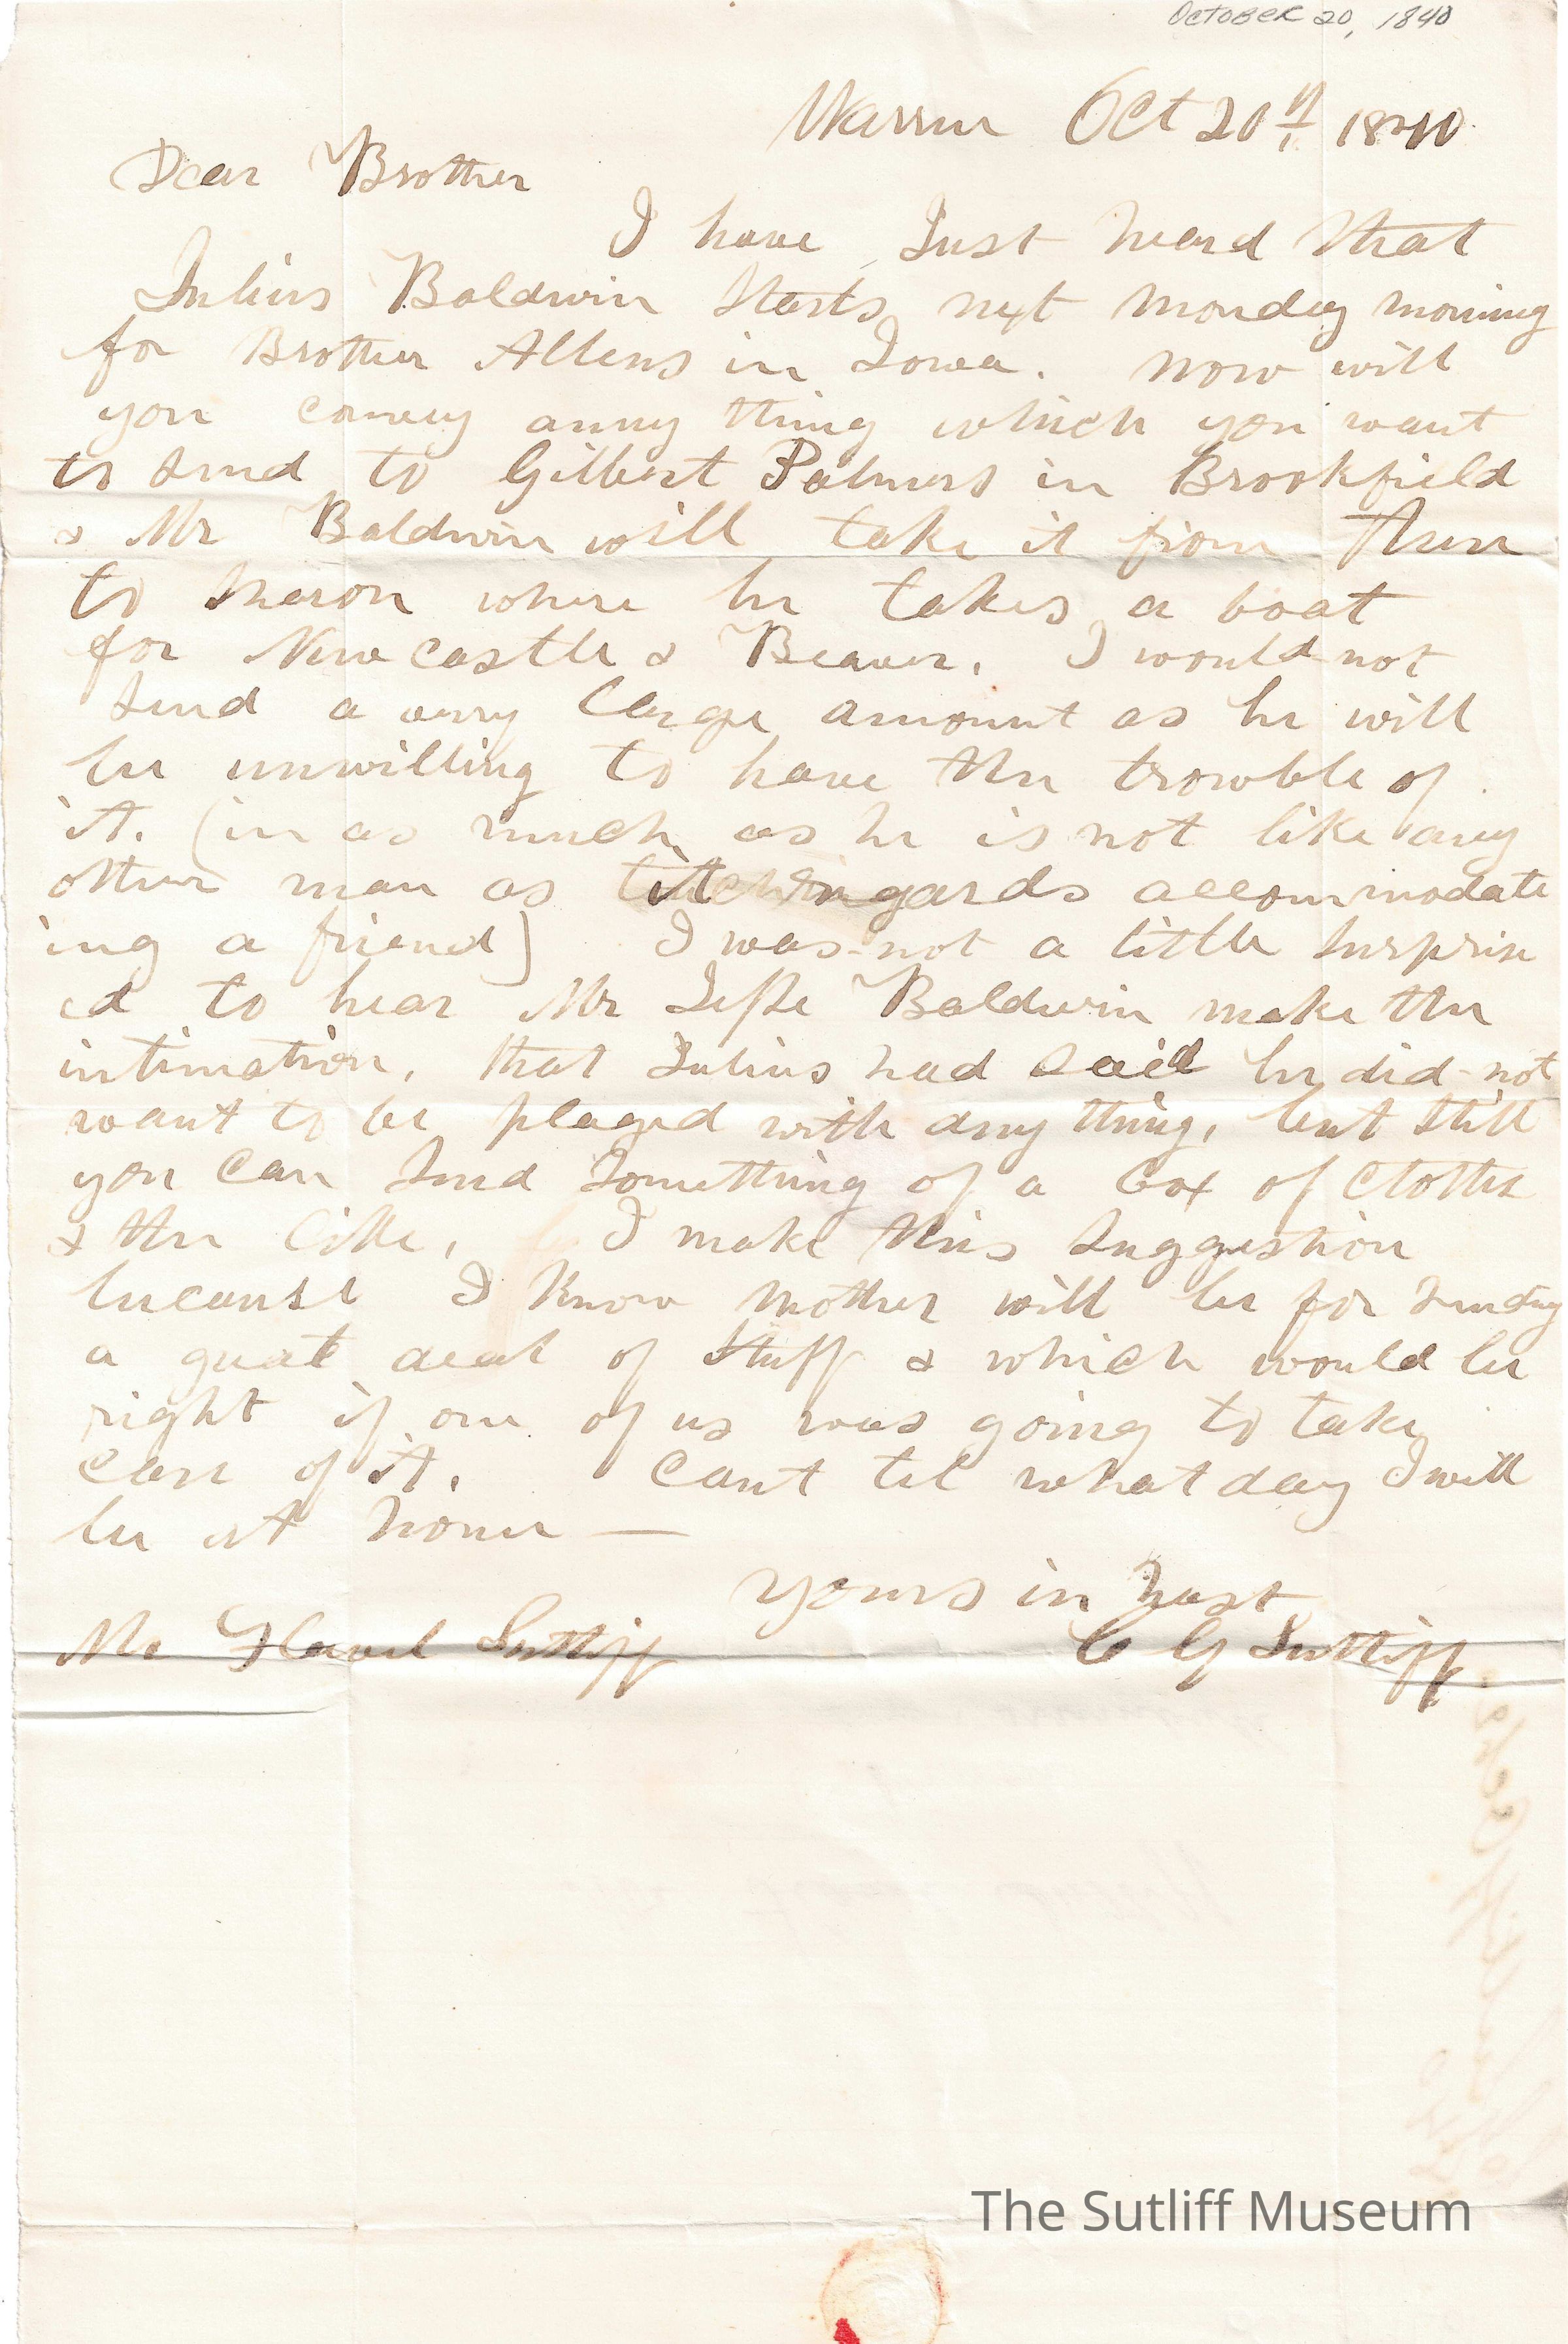 October 20, 1840
Warren Oct 20th 1840
Dear Brother
I have Just heard that
Julius Baldwin starts next monday morning
for Brother Allens in Iowa. now will
you convey anny thing which you want
to send to Gilbert Palmers in Brookfield
& Mr Baldwin will take it from there
to Sharon where he takes a boat
for New castle & Beaver. I would not
send a very large amount as he will
be unwilling to have the trowble of
it. (in as much as he is not like any
other man as it regards accommodate
ing a friend) I was not a little surpris
ed to hear Mr Jesse Baldwin make the
intimation, that Julius had said he did not
want to be plaged with any thing, but still
you can send something of a box of clothes
& the like, I make this suggestion
because I know mother will be for sending
a great deal of stuff & which would be
right if one of us was going to take
care of it. Cant tel what day I will
be at home —
yours in hast
Mr Flavel Sutliff C G Sutliff
The Sutliff Museum